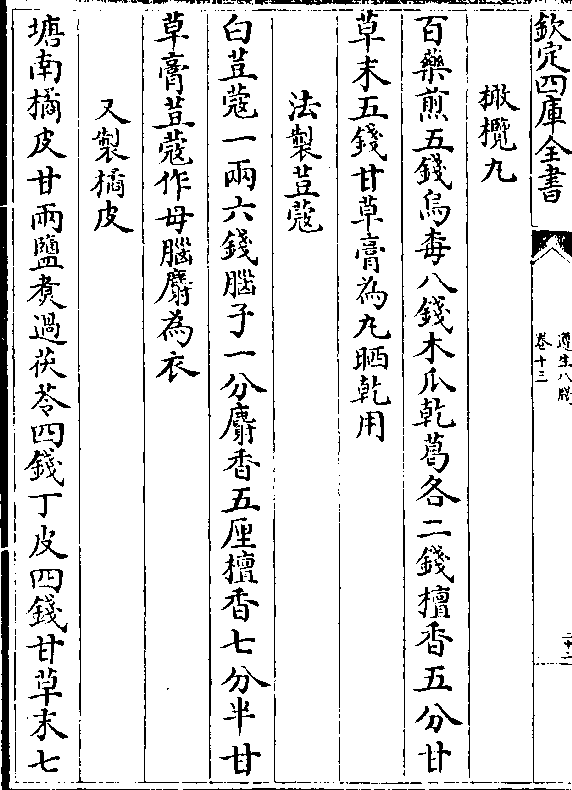 欽定四庫全書
遵生八牋
卷十三
二十二
橄欖丸
百藥煎五錢烏毒八錢木瓜乾葛各二錢檀香五分甘
草末五錢甘草膏為丸晒乾用
法製荳蔻
白荳蔻一兩六錢腦子一分麝香五厘檀香七分半甘
草膏荳蔻作母腦麝為衣
又製橘皮
塘南橘皮廿兩鹽煮過茯苓四錢丁皮四錢甘草末七